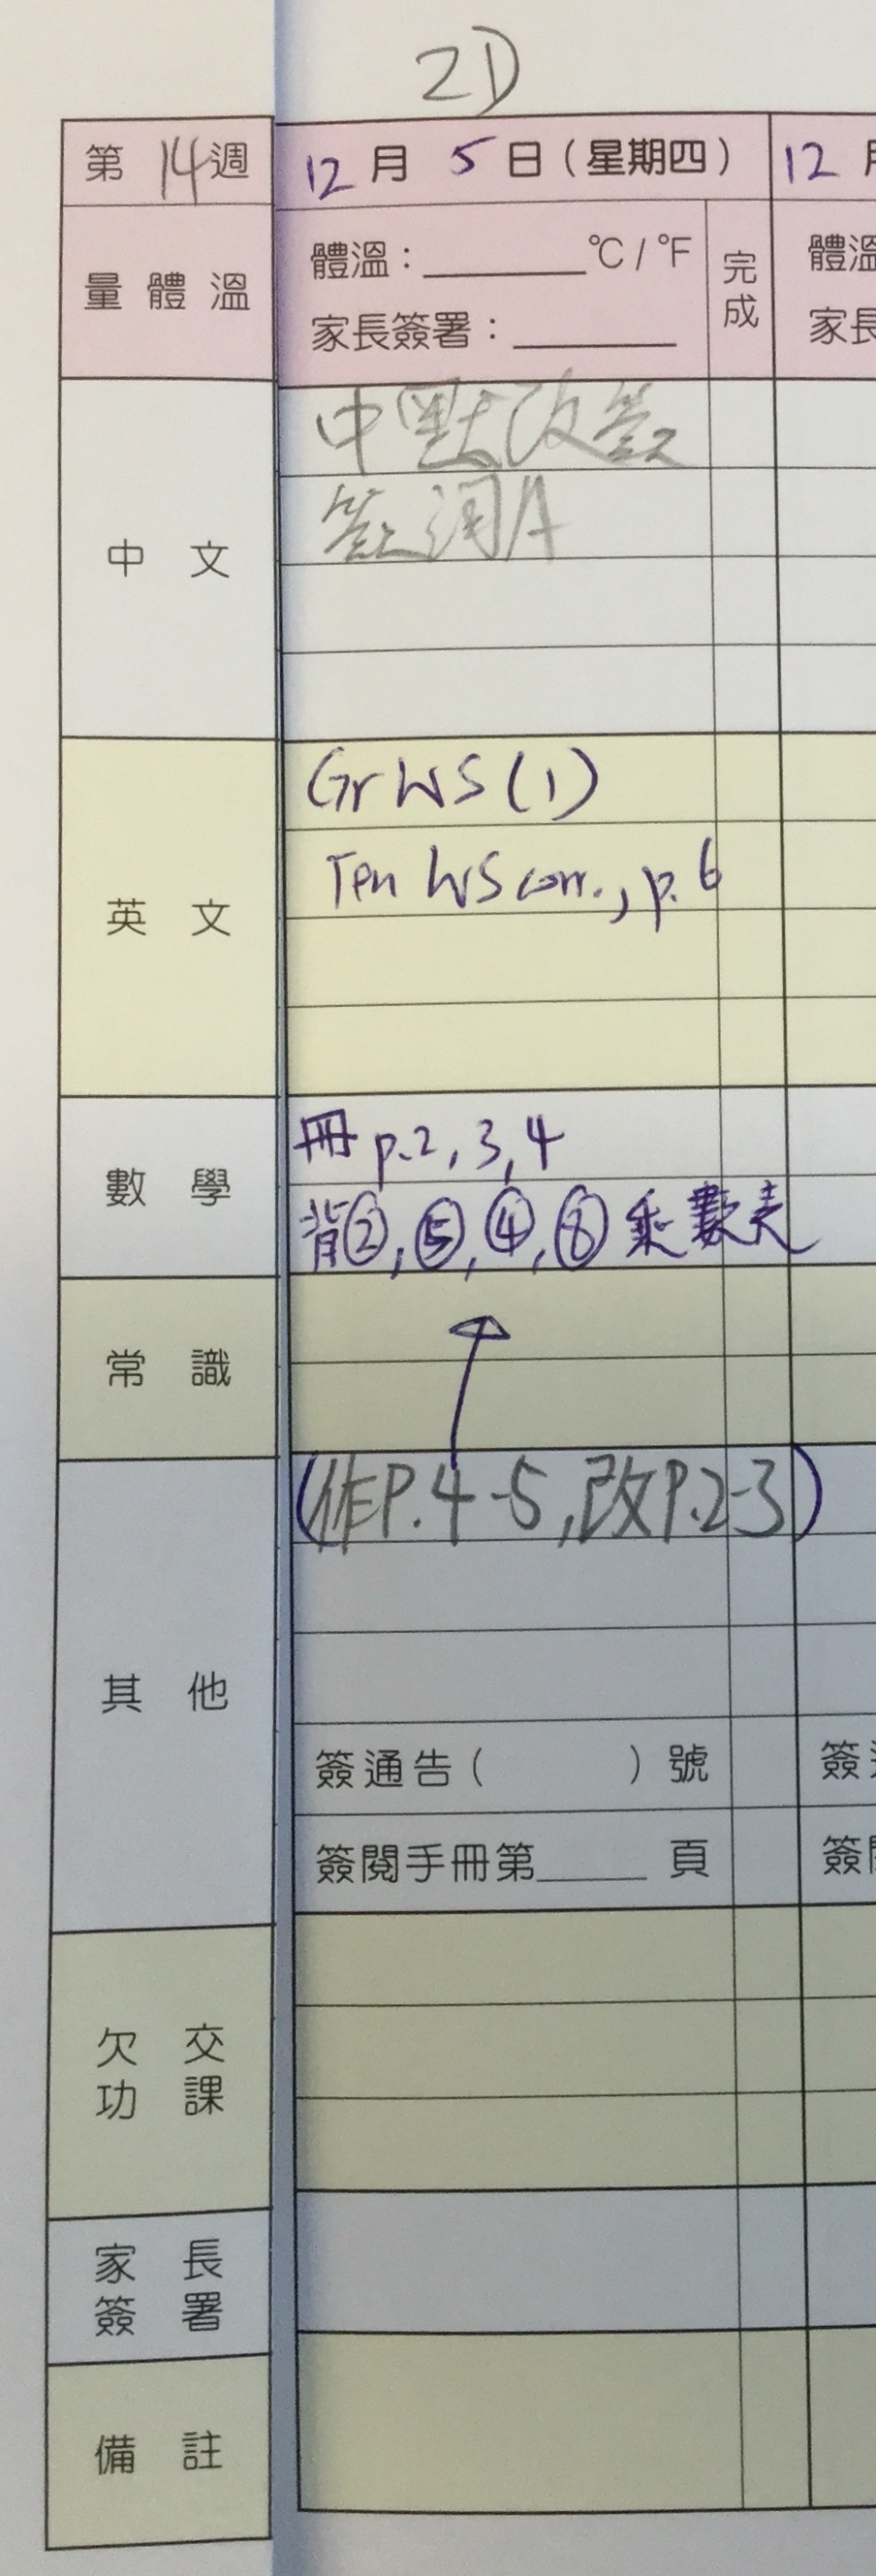 2D
第 14 週 12 月 5 日(星期四) 12
量體溫 體溫:______°C/°F 完成 體溫
家長簽署:______ 家長
中文 中默改簽
簽測A
英文 Gr WS (1)
Ten WS corr., p.6
數學 冊 p.2, 3, 4
背②,⑤,④,⑧ 乘數表
常識
(作P.4-5,改P.2-3)
其他
簽通告( )號 簽
簽閱手冊第_____頁 簽閱
欠交功課
家長簽署
備註